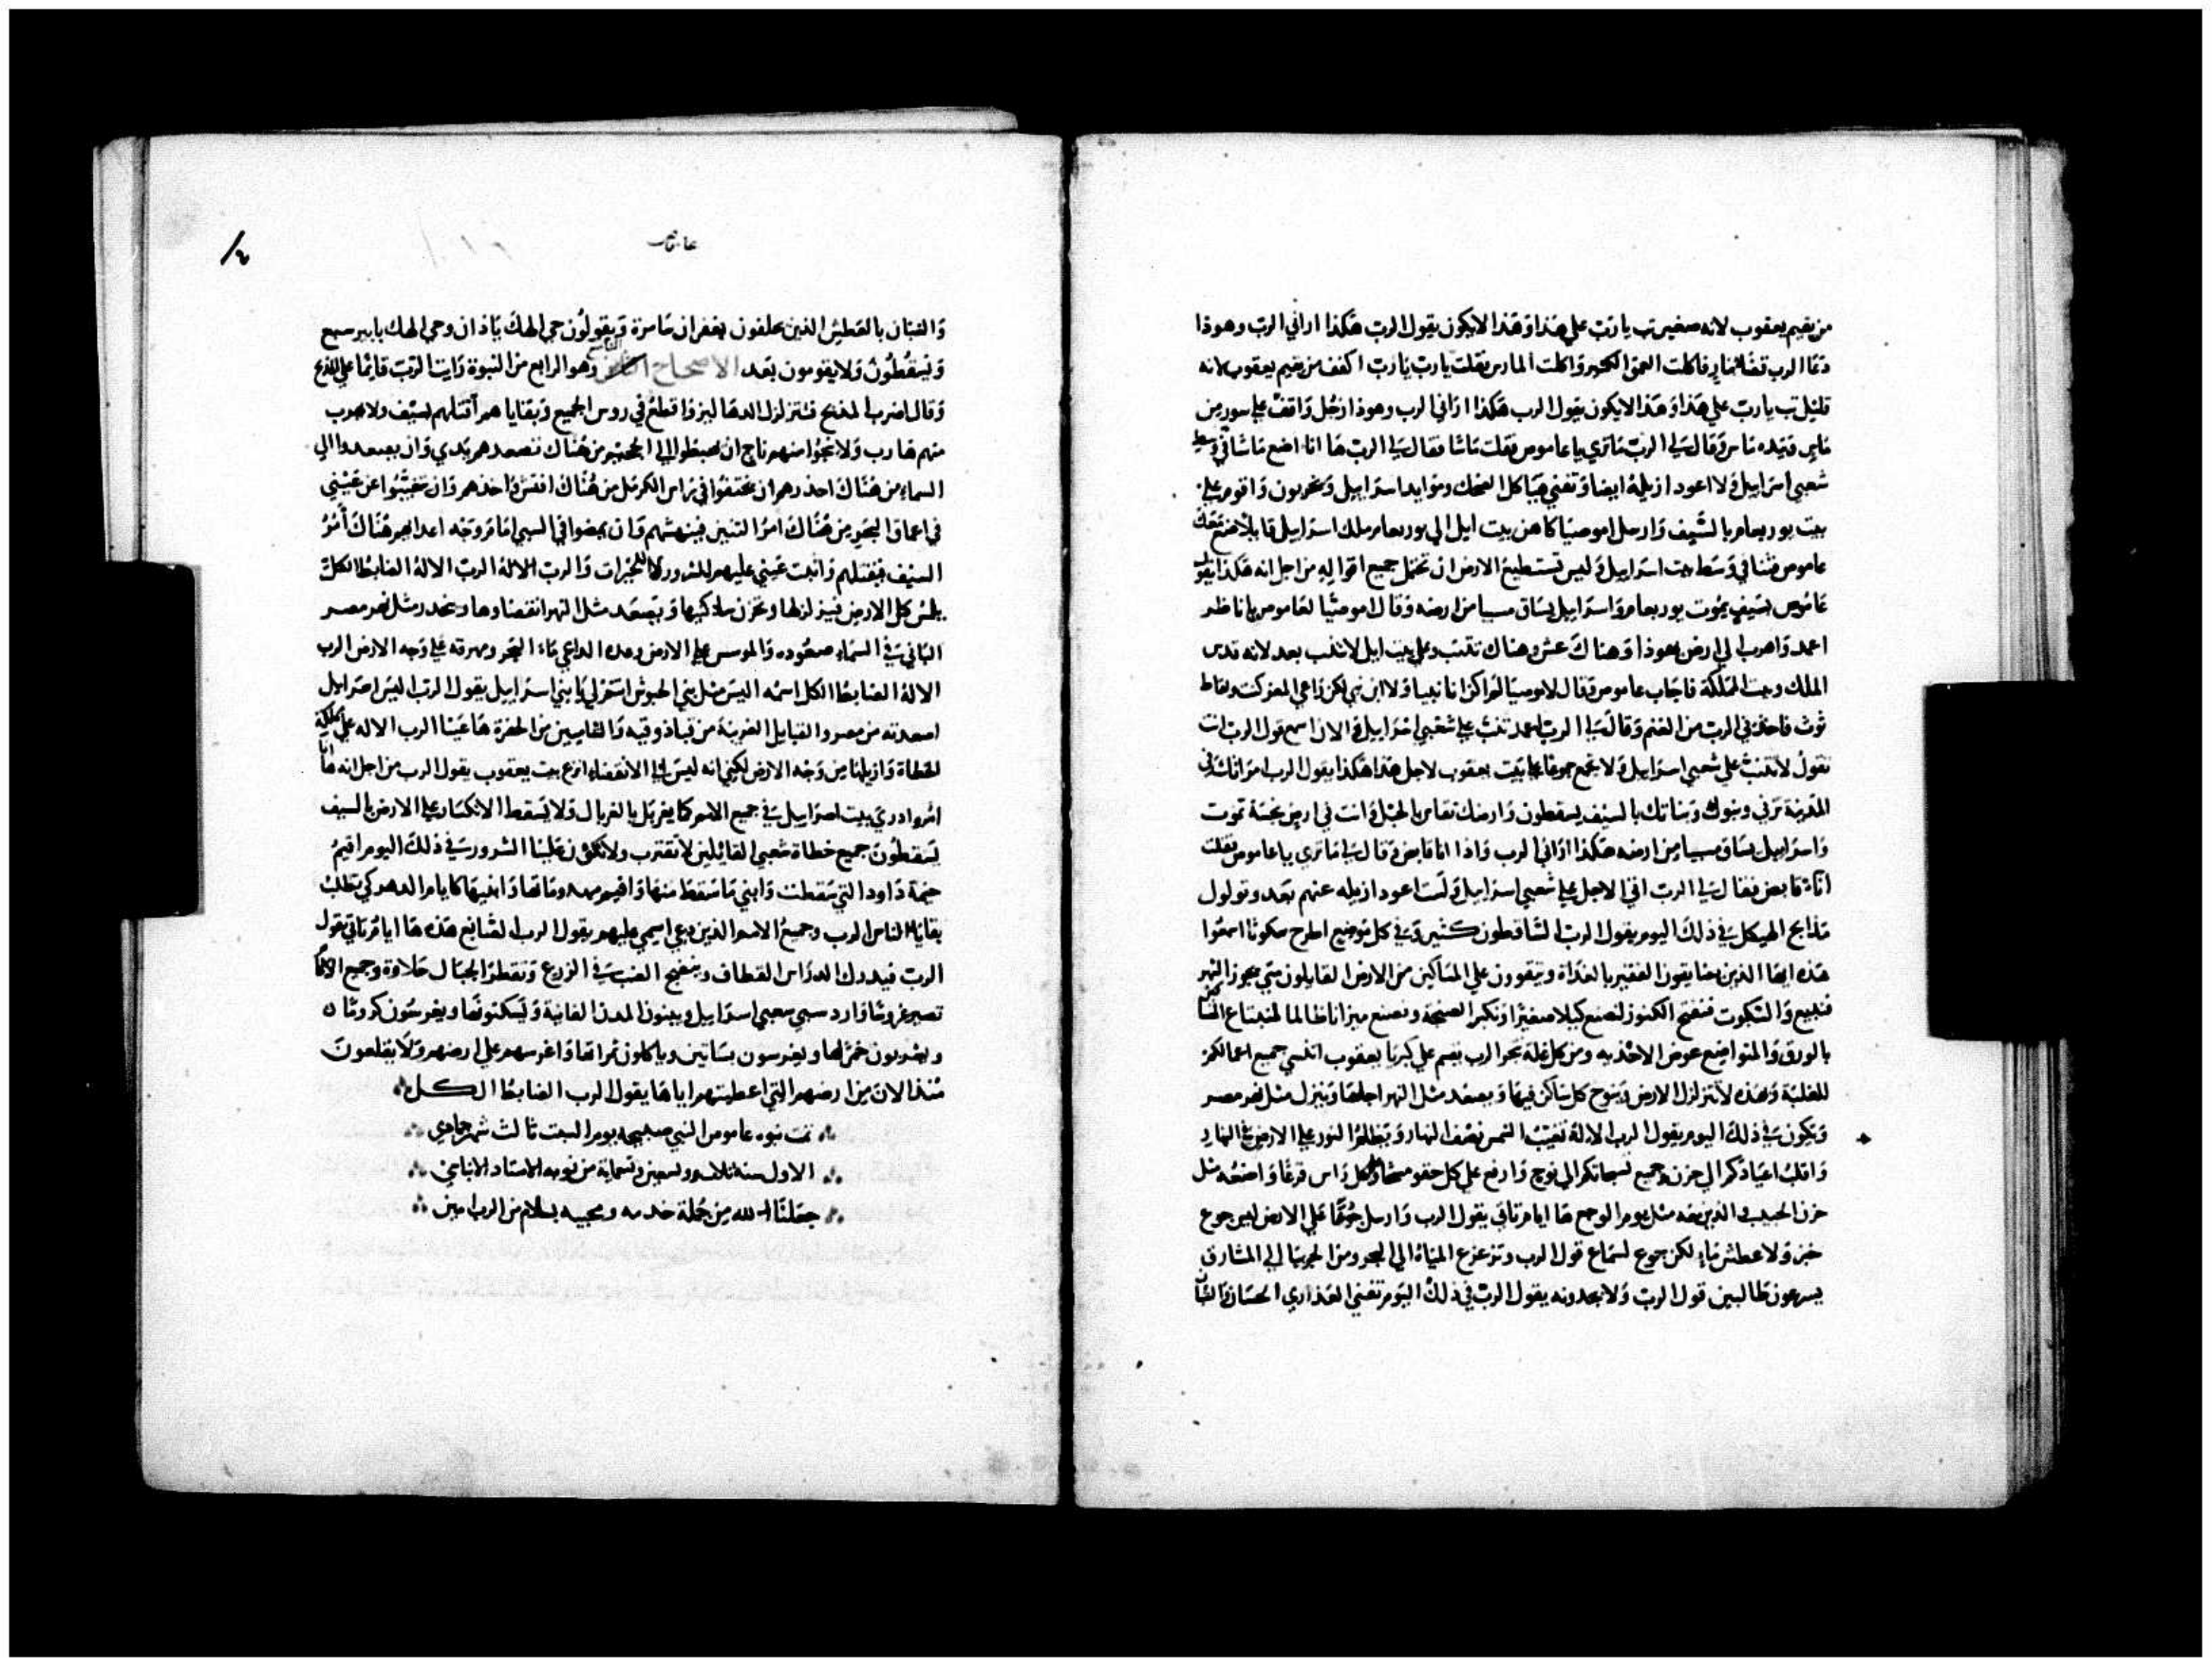 من يقيم يعقوب لانه صغير تب يا رب علي هذا وهذا لا يكون يقول الرب هكذا اراني الرب وهوذا
دعا الرب قضا بنار فاكلت العمق الكبير واكلت المارس فقلت يا رب يا رب اكفف من يقيم يعقوب لانه
قليل تب يا رب علي هذا وهذا لا يكون يقول الرب هكذا اراني الرب وهوذا رجل واقف علي سور من
ماس وبيده ماس وقال لي الرب ما تري يا عاموص فقلت ماسا فقال لي الرب ها انا اضع ماسا في وسط
شعبي اسراييل ولا اعود ازيله ايضا وتفني هياكل الضحك وموايد اسراييل وتخربون واقوم علي
بيت يوربعام بالسيف وارسل اموصيا كاهن بيت ايل الي يوربعام ملك اسراييل قايلا صنع
عاموص فتنا في وسط بيت اسراييل وليس تستطيع الارض ان تحتمل جميع اقواله من اجل انه هكذا يقول
عاموص بسيف يموت يوربعام واسراييل يساق مسبيا من ارضه وقال اموصيا لعاموص يا ناظر
اعمد واهرب الي ارض يهوذا وهناك عش وهناك تتنب وعلي بيت ايل لا تتنب بعد لانه قدس
الملك وبيت المملكة فاجاب عاموص وقال لاموصيا لم اكن انا نبيا ولا ابن نبي لكن راعي المعز كنت ولقاط
توت فاخذني الرب من الغنم وقال لي الرب اعمد تنب علي شعبي اسراييل والان اسمع قول الرب انت
تقول لا تتنب علي شعبي اسراييل ولا تجمع جموعا علي بيت يعقوب لاجل هذا هكذا يقول الرب امراتك في
المدينة تزني وبنوك وبناتك بالسيف يسقطون وارضك تقاس بالحبل وانت في ارض نجسة تموت
واسراييل يساق مسبيا من ارضه هكذا اراني الرب واذا انا قابض وقال لي ما تري يا عاموص فقلت
اناء قابض فقال لي الرب اتي الاجل علي شعبي اسراييل ولست اعود ازيله عنهم بعد وتولول
مذابح الهيكل في ذلك اليوم يقول الرب الساقطون كثير وفي كل موضع اطرح سكوتا اسمعوا
هذه ايها الذين يضايقون الفقير بالغداة ويتقوون علي المساكين من الارض القايلون متي يجوز الشهر
فنبيع والسبوت فنفتح الكنوز لنصنع كيلا صغيرا ونكبر الصنجة ونصنع ميزانا ظالما لنبتاع المساكين
بالورق والمتواضع عوض الاحذيه ومن كل غلة نتجر الرب يقسم علي كبريا يعقوب ان نسي جميع اعمالكم
للغلبة وهذه لا تتزلزل الارض وينوح كل ساكن فيها ويصعد مثل النهر اجلها وينزل مثل نهر مصر
ويكون في ذلك اليوم يقول الرب الاله تغيب الشمس نصف النهار ويظلم النور علي الارض في النهار
واقلب اعيادكم الي حزن وجميع تسبحاتكم الي نوح وارفع علي كل حقو مسحا وعلي كل راس قرعا واضعه مثل
حزن الحبيب والذين معه مثل يوم الوجع ها ايام تاتي يقول الرب وارسل جوعا علي الارض ليس جوع
خبز ولا عطش ماء لكن جوع لسماع قول الرب وتزعزع المياه الي البحر ومن الجربيا الي المشارق
يسرعون طالبين قول الرب ولا يجدونه يقول الرب في ذلك اليوم تفني العذاري الحسان والشبان
عاموص
والفتيان بالعطش الذين يحلفون بغفران سامرة ويقولون حي الهك يا ذان وحي الهك يا بير سبع
ويسقطون ولا يقومون بعد الاصحاح التاسع وهو الرابع من النبوة رايت الرب قايما علي المذبح
وقال اضرب المذبح فتتزلزل الدهاليز واقطع في روس الجميع وبقاياهم اقتلهم بسيف ولا يهرب
منهم هارب ولا ينجوا منهم ناج ان هبطوا الي الجحيم من هناك تصعدهم يدي وان يصعدوا الي
السماء من هناك احدرهم ان يختفوا في راس الكرمل من هناك افتش واخذهم وان تغيبوا عن عيني
في اعماق البحر من هناك امر التنين فينهشهم وان يمضوا في السبي امام وجه اعدايهم هناك امر
السيف فيقتلهم واثبت عيني عليهم للشرور لا للخيرات والرب الاله الرب الاله الضابط الكل
يلمس كل الارض فيزلزلها وتحزن ساكنيها ويصعد مثل النهر انقضاوها وينحدر مثل نهر مصر
الباني في السماء صعوده والموسس علي الارض وعده الداعي ماء البحر ومهرقه علي وجه الارض الرب
الاله الضابط الكل اسمه اليس مثل بني الحبوش انتم لي يا بني اسراييل يقول الرب اليس اسراييل
اصعدته من مصر والقبايل الغريبة من قباذوقيه والشاميين من الحفرة ها عينا الرب الاله علي مملكة
الخطاة وازيلها من وجه الارض لكني انه ليس الي الانقضاء انزع بيت يعقوب يقول الرب من اجل انه ها انا
امر واذري بيت اسراييل في جميع الامم كما يغربل بالغربال ولا يسقط الانكسار علي الارض بالسيف
يسقطون جميع خطاة شعبي القائلين لا تقترب ولا تكون علينا الشرور في ذلك اليوم اقيم
خيمة داود التي سقطت وابني ما سقط منها واقيم مهدوماتها وابنيها كايام الدهر كي يطلب
بقايا الناس الرب وجميع الامم الذين دعي اسمي عليهم يقول الرب الصانع هذه ها ايام تاتي يقول
الرب فيدرك الدراس القطاف وينضج العنب في الزرع وتقطر الجبال حلاوة وجميع الاكام
تصير غروسا وارد سبي شعبي اسراييل ويبنون المدن الفانية ويسكنونها ويغرسون كروما
ويشربون خمرها ويغرسون بساتين وياكلون ثمراتها واغرسهم علي ارضهم ولا يقلعون
منذ الان من ارضهم التي اعطيتهم اياها يقول الرب الضابط الكل
تمت نبوه عاموص النبي صبيحة يوم السبت ثالث شهر جمادي
الاول سنه ثلاثه وتسعين وتسماية من نوبه الاستاد الانباسي
جعلنا الله من جملة خدمه ومحبيه بسلام من الرب امين